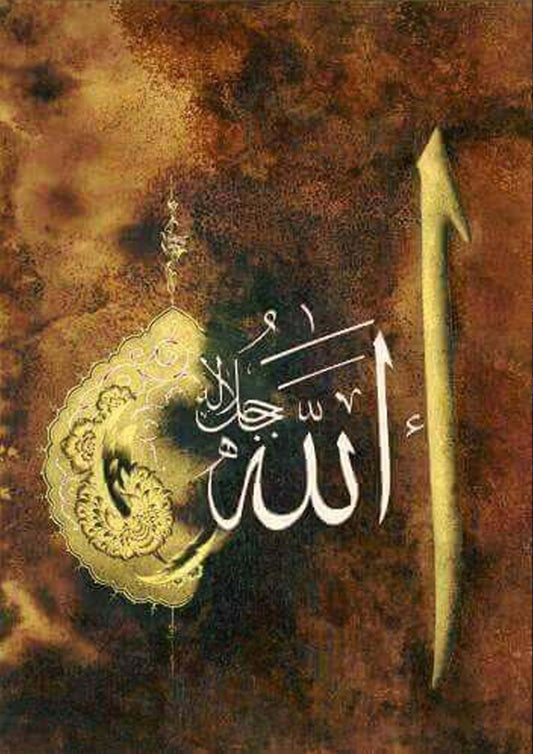 ا
الله
جل جلاله